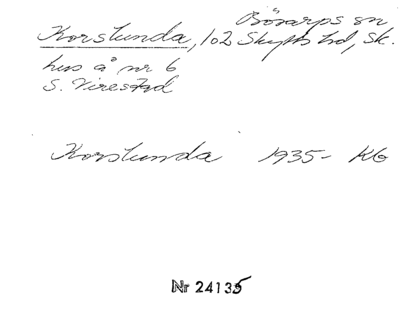 Bösarps sn
Korslunda, 102 Skytts hd, Sk.
hus å nr 6
S. Virestad
Korslunda 1935- KG
Nr 24135